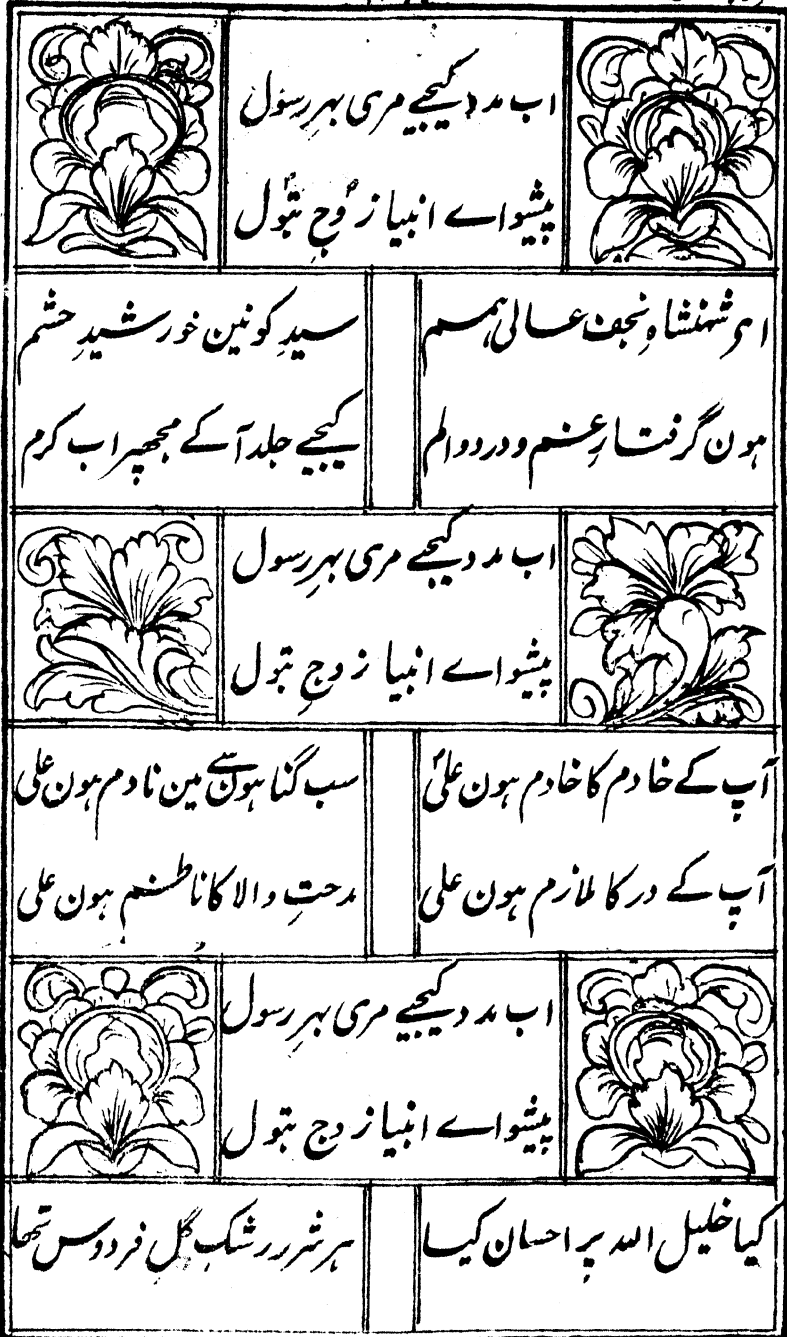 اب مدد کیجیے مری بہرِ رسول
پیشواے انبیا زوجِ بتول
اے شہنشاہِ نجف عالی ہمم
سیدِ کونین خورشیدِ حشم
ہون گرفتارِ غم و درد و الم
کیجیے جلد آکے مجھپر اب کرم
اب مدد کیجیے مری بہرِ رسول
پیشواے انبیا زوجِ بتول
آپ کے خادم کا خادم ہون علیؑ
سب گناہونسے مین نادم ہون علی
آپ کے در کا ملازم ہون علی
مدحتِ والا کا ناظم ہون علی
اب مدد کیجیے مری بہرِ رسول
پیشواے انبیا زوج بتول
کیا خلیل اللہ پر احسان کیا
ہر شرر رشکِ گلِ فردوس تھا